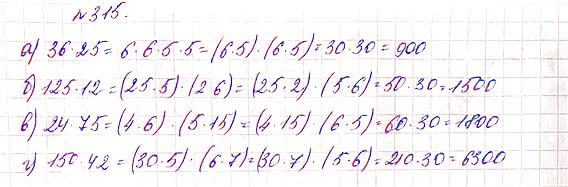 №315.
а) 36·25 = 6·6·5·5 = (6·5)·(6·5) = 30·30 = 900
б) 125·12 = (25·5)·(2·6) = (25·2)·(5·6) = 50·30 = 1500
в) 24·75 = (4·6)·(5·15) = (4·15)·(6·5) = 60·30 = 1800
г) 150·42 = (30·5)·(6·7) = (30·7)·(5·6) = 210·30 = 6300